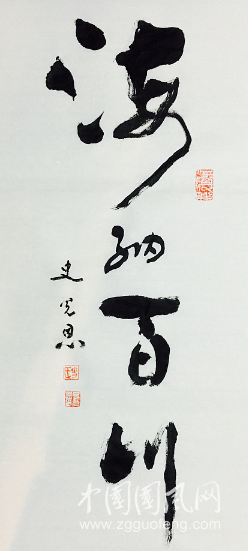 海纳百川
史光思
中国国风网
www.zgguofeng.com